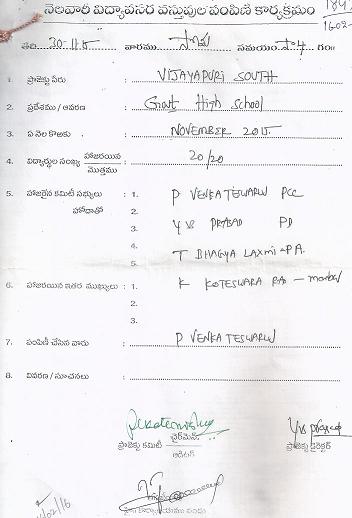 నెలవారీ విద్యావసర వస్తువుల పంపిణీ కార్యక్రమం
తేది. 30-11-15 వారము సోమ సమయం గం॥
1. ప్రాజెక్టు పేరు : VIJAYAPURI SOUTH
2. ప్రదేశము / ఆవరణ : Govt High School
3. ఏ నెల కొరకు : NOVEMBER 2015
4. విద్యార్థుల సంఖ్య హాజరయిన / మొత్తము : 20/20
5. హాజరైన కమిటీ సభ్యులు : 1. P VENKATESWARLU PCC
హోదాతో 2.
3. Y VS PRASAD PD
4.
5. T BHAGYA LAXMI - PA.
6. హాజరయిన ఇతర ముఖ్యులు : 1. K KOTESWARA RAO -
2.
3.
7. పంపిణీ చేసిన వారు : P VENKATESWARLU
8. వివరణ / సూచనలు :
ప్రాజెక్టు కమిటీ ఛైర్‌మెన్ / ఆడిటర్
ప్రాజెక్టు డైరెక్టర్